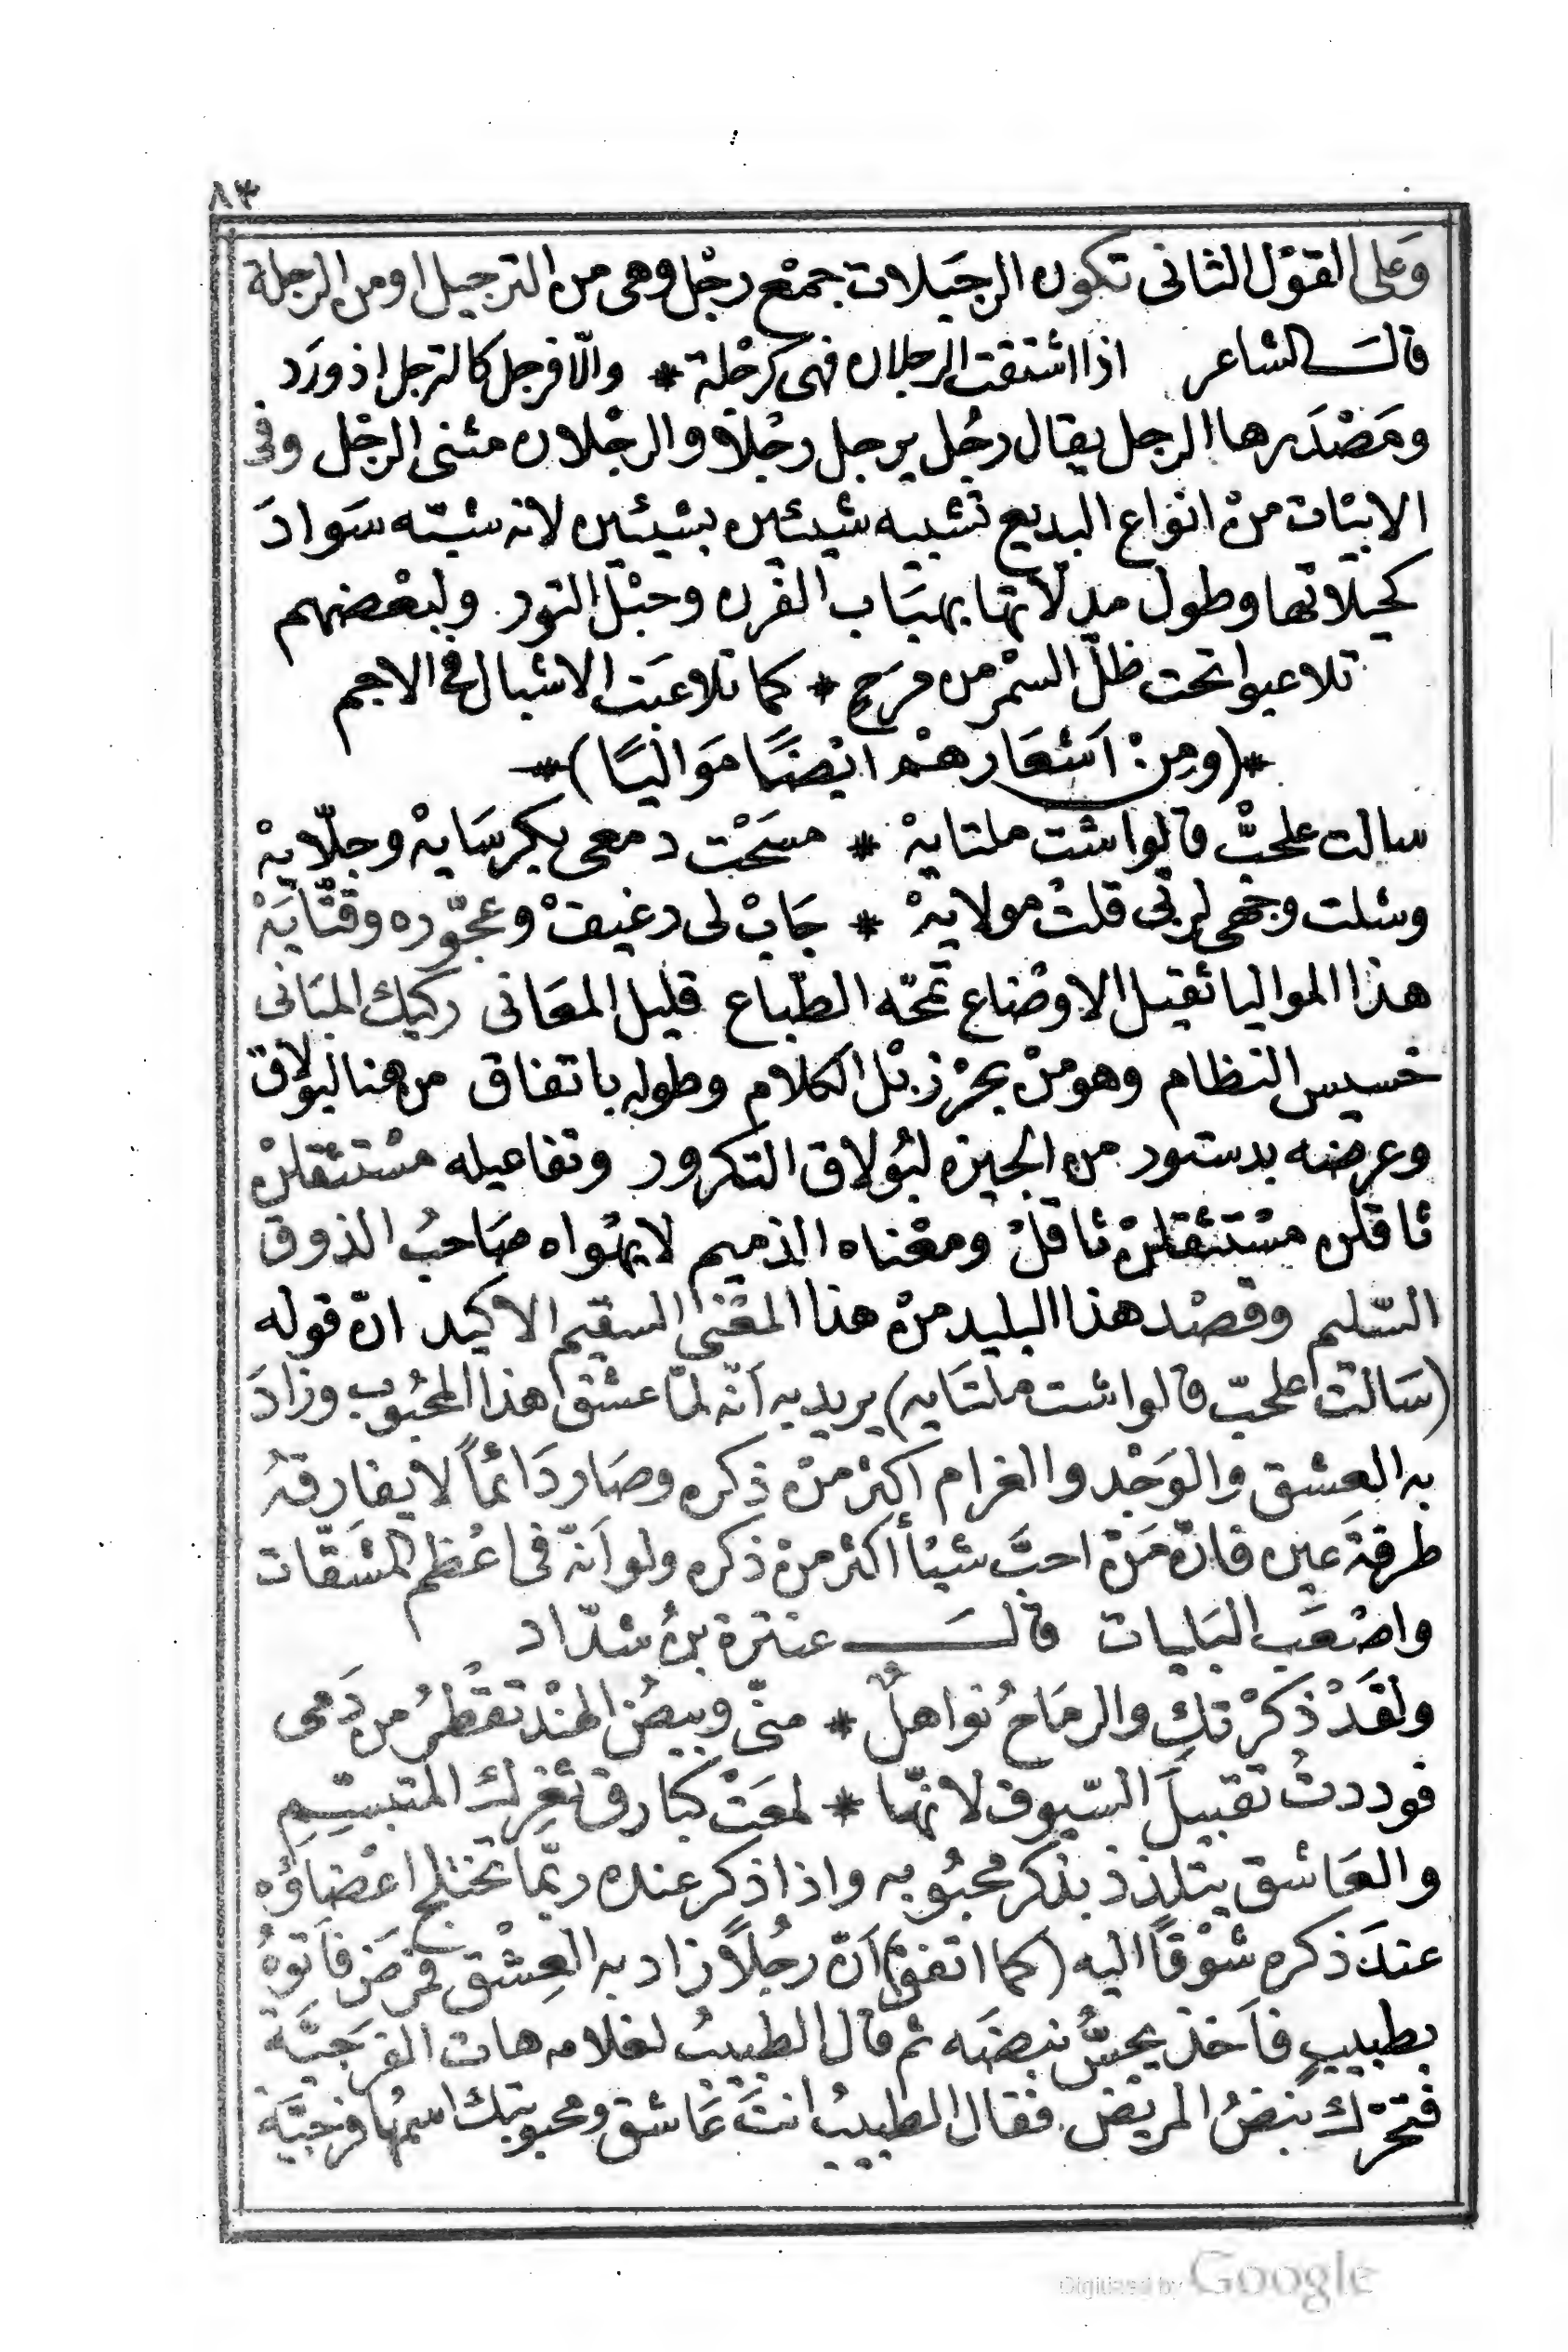 ٨٣
وَعلى القوْل الثانى تكون الرجَيلات جمْع رجْل وهى من الترجيل او من الرجلة
قالَ الشاعر اذا اشتقت الرجلان فهى كرَجْلة * والّا فرجل كالترجل اذ ورَد
ومَصْدَرها الرجل يقال رجُل يرجل رجْلاً والرجْلان مثنى الرجْل وفى
الابيَات منْ انوَاع البديع تشبيه شيئين بشيئين لانه شبّه سَوادَ
كحيلاتها وطول مدلاتها بهبَاب الفرن وحبْل التور. ولبعْضهم
تلاعبوا تحت ظلّ السمْر من فرَحٍ * كما تلاعبَت الاشبال فى الاجم
*(ومِنْ اَشعَارهمْ ايْضًا مَوَاليًا)*
سالت علحبّ قالوا شت ملتايهْ * مسَحْت دمعى بكرسَايهْ وجلّايهْ
وشلت وجْهى لربّى قلت مولايهْ * جَابْ لى رغيفْ وعجّوره وقتّايَهْ
هذا المواليا ثقيل الاوضاع تمجّه الطّباع قليل المعَانى ركيك المبَانى
خسيس النظام وهو منْ بحْر زبْل الكلام وطوله باتفاق من هنا لبُولاق
وعرضه بدستور من الجيزه لبُولاق التكرور وتفاعيله مسْتثقلنْ
ثاقلن مسْتثقلنْ ثاقلْ ومعْناه الذميم لا يهْواه صَاحبُ الذوق
السّليم وقصْد هذا البليد منْ هذا المعْنى السقيم الاكيد انّ قوله
(سَالتْ علحبّ قالوا شت ملتَايه) يريد به اَنّه لمّا عشق هذا المحْبُوب وزادَ
به العشق والوَجْد والغرام اكثرَ منْ ذكره وصَار دَائماً لا يفارقهُ
طرفةَ عين فانّ مَنْ احبَّ شيئاً أكثر منْ ذكره ولو اَنّه فى اعْظم المشقّات
واصْعَب البَليات قالَ عنترة بنُ شدّاد
ولقَدْ ذكرْتكِ والرمَاحُ نواهلٌ * منّى وبيضُ الهنْد تقْطرُ من دَمى
فوددتُ تقبيلَ السّيوف لانّها * لمعَتْ كبَارق ثغْركِ المتبسّمِ
والعَاشق يتلذذ بذكر محبُوبه واذا ذكر عنده ربّما تختلج اعْضاؤه
عندَ ذكره شوْقاً اليه (كما اتفق) اَنّ رجُلاً زاد به العِشْق فمَرضَ فاَتوْهُ
بطبيبٍ فاَخذ يجسُّ نبضَه ثم قال الطبيبُ لغلامه هات الفرجيَّة
فتحرّك نبضُ المريض فقال الطبيبُ انتَ عَاشق ومحبوبتك اسمُها فرجيَّة
Digitized by Google